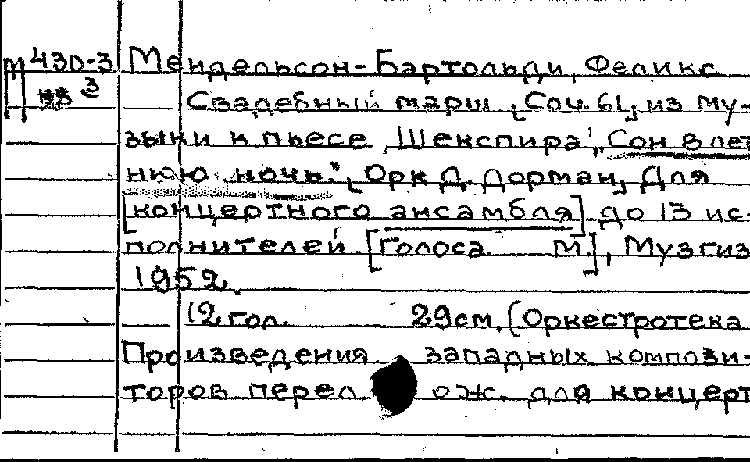 М 430-3 Мендельсон-Бартольди, Феликс
3 Свадебный марш [Соч. 61] из му-
зыки к пьесе Шекспира „Сон в лет
нюю ночь". [Орк. Д. Дорман] Для
[концертного ансамбля] до 13 ис-
полнителей [Голоса М.], Музгиз
1952.
12 гол. 29 см. (Оркестротека
Произведения западных компози-
торов перел ож. для концерт